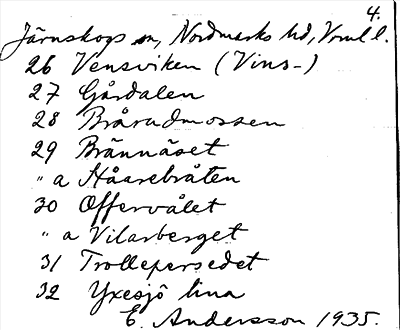 4.
Järnskogs sn, Nordmarks hd, Vrml l.
26 Vensviken (Vins-)
27 Gårdalen
28 Bråradmossen
29 Brännäset
" a Håarebråten
30 Offervålet
" a Vilarberget
31 Trollepersedet
32 Yxesjö lina
E. Andersson 1935.